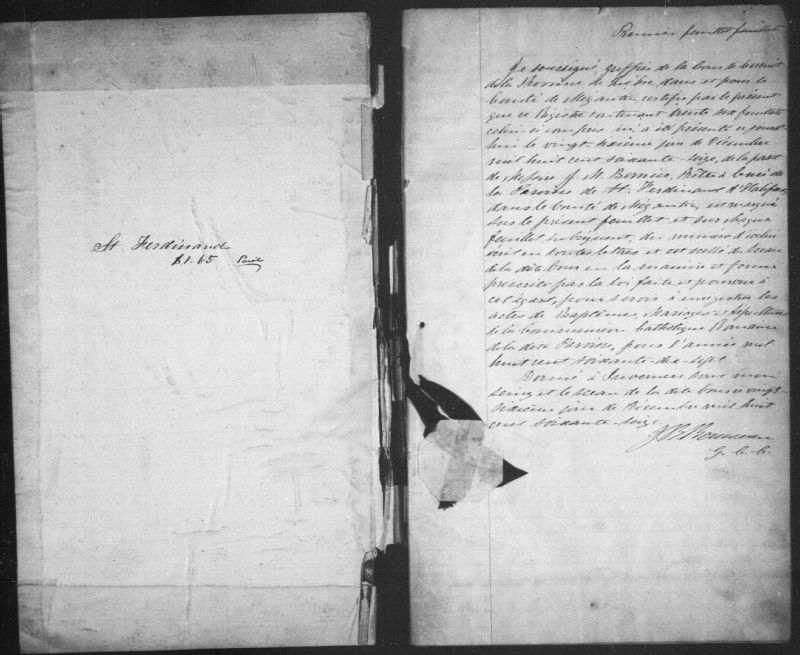 St. Ferdinand
$1.65 Paid
Premier feuillet feuillet
Je soussigné, greffier de la Cour de Circuit
de la Province de Québec, dans et pour le
Comté de Mégantic, certifie par le présent
que ce Régistre contenant trente six feuillets
celui-ci compris m'a été présenté ce jourd
hui le vingt-sixième jour de Décembre
mil huit cent soixante-seize, de la part
de Messire J. M. Bernier, Prêtre & Curé de
la Paroisse de St. Ferdinand d'Halifax,
dans le Comté de Mégantic, est marqué
sur le présent feuillet et sur chaque
feuillet subséquent, du numéro d'icelui
écrit en toutes lettres et est scellé du sceau
de la dite Cour en la manière et forme
prescrite par la loi faite et pourvue à
cet égard, pour servir à enregistrer les
actes de Baptêmes, Mariages et Sépultures
de la Communion Catholique Romaine
de la dite Paroisse, pour l'année mil
huit cent soixante-dix-sept.
Donné à Inverness sous mon
seing et le sceau de la dite Cour ce vingt-
sixième jour de Décembre mil huit
cent soixante-seize.
G. C. C.